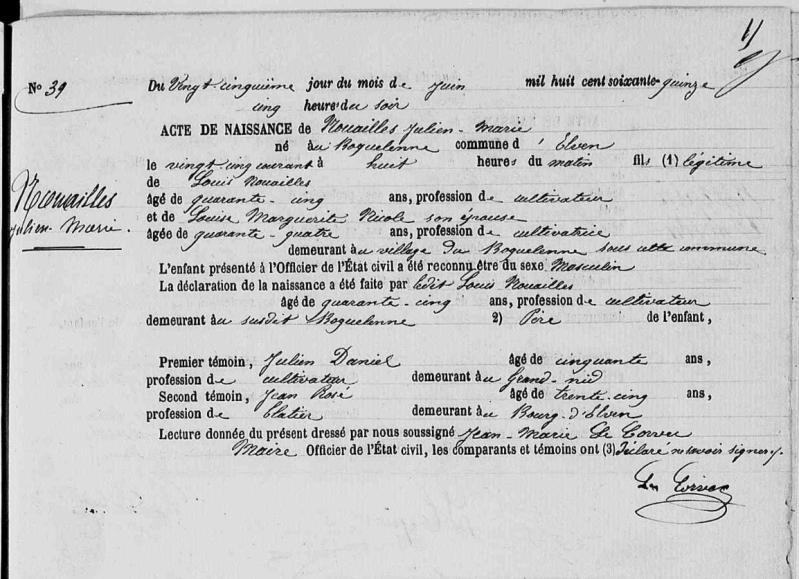 11
No 39
Du Vingt-cinquième jour du mois de juin mil huit cent soixante-quinze
cinq heures du soir
ACTE DE NAISSANCE de Nouailles Julien-Marie
né au Boquelenne commune d'Elven
le vingt cinq courant à huit heures du matin fils (1) légitime
de Louis Nouailles
âgé de quarante-cinq ans, profession de cultivateur
et de Louise Marguerite Nicole son épouse
âgée de quarante-quatre ans, profession de cultivatrice
demeurant au village du Boquelenne sous cette commune
Nouailles
Julien-Marie.
L'enfant présenté à l'Officier de l'État civil a été reconnu être du sexe Masculin
La déclaration de la naissance a été faite par ledit Louis Nouailles
âgé de quarante-cinq ans, profession de cultivateur
demeurant au susdit Boquelenne 2) Père de l'enfant,
Premier témoin, Julien Daniel âgé de cinquante ans,
profession de cultivateur demeurant au Grand-
Second témoin, Jean Rosé âgé de trente-cinq ans,
profession de demeurant au Bourg-d'Elven
Lecture donnée du présent dressé par nous soussigné Jean-Marie Le
Maire Officier de l'État civil, les comparants et témoins ont (3) déclaré ne savoir signer